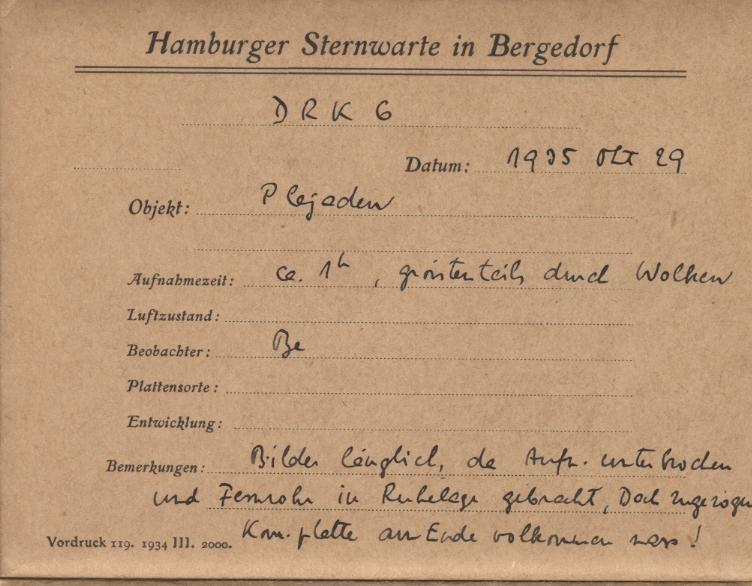 Hamburger Sternwarte in Bergedorf
DRK 6
Datum: 1935 Okt 29
Objekt: Plejaden
Aufnahmezeit: ca. 1h, grösstenteils durch Wolken
Luftzustand:
Beobachter: Be
Plattensorte:
Entwicklung:
Bemerkungen: Bilder länglich, da Aufn. unterbrochen
und Fernrohr in Ruhelage gebracht, Dach zugezogen
Kom. platte am Ende vollkommen nass!
Vordruck 119. 1934 III. 2000.